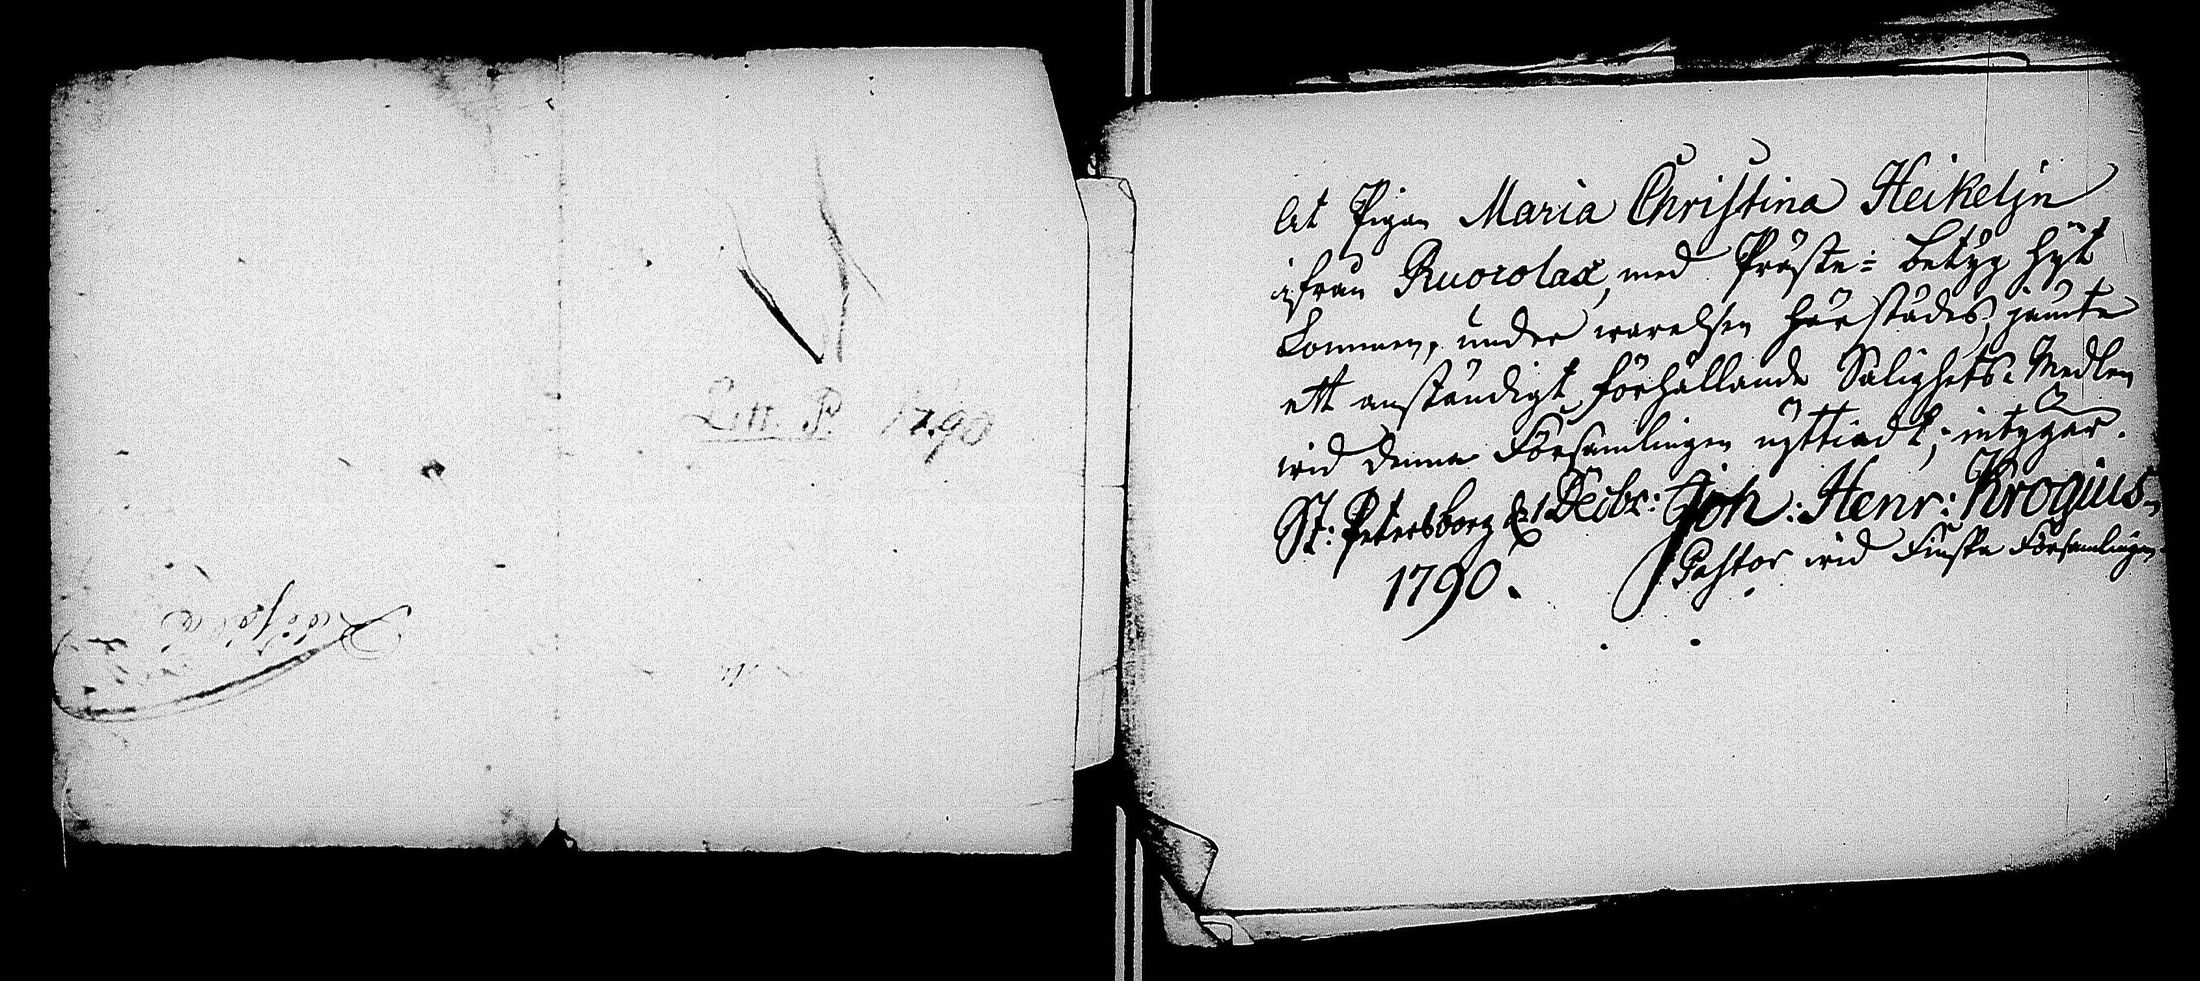 Litt. P. 1790
At Pigan Maria Christina Heikelin
ifrån Ruorolax, med Präste-betyg hijt
kommen, under warelsen härstädes, jämte
ett anständigt förhållande Salighets-Medlen
wid denna Församlingen nyttiadt; intygar.
St: Petersborg d 1 Decbr: Joh: Henr: Krogius
1790. Pastor wid Finska Församlingen